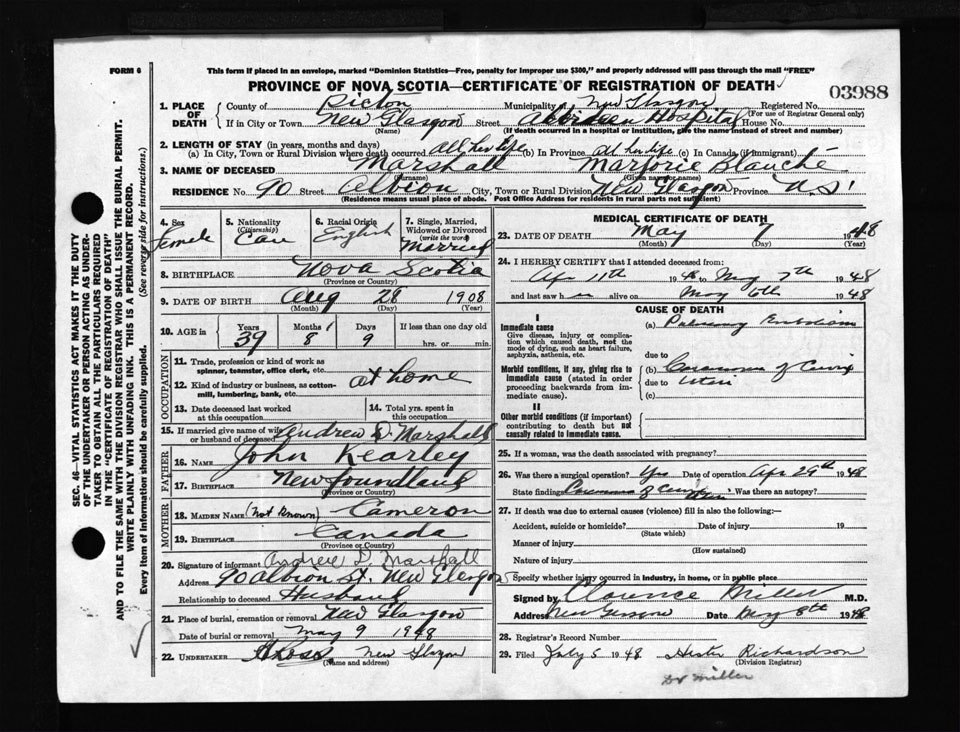 FORM 6
This form if placed in an envelope, marked "Dominion Statistics—Free, penalty for improper use $300," and properly addressed will pass through the mail "FREE"
PROVINCE OF NOVA SCOTIA—CERTIFICATE OF REGISTRATION OF DEATH
03988
1. PLACE OF DEATH
County of Pictou Municipality New Glasgow Registered No.
(For use of Registrar General only)
If in City or Town New Glasgow Street Aberdeen Hospital House No.
(Name) (If death occurred in a hospital or institution, give the name instead of street and number)
2. LENGTH OF STAY (in years, months and days)
(a) In City, Town or Rural Division where death occurred All her life (b) In Province All her life (c) In Canada (if immigrant)
3. NAME OF DECEASED Marshall Marjorie Blanche
(Surname) (Given name or names)
RESIDENCE No. 90 Street Albion City, Town or Rural Division New Glasgow Province N S
(Residence means usual place of abode. Post Office Address for residents in rural parts not sufficient)
SEC. 46—VITAL STATISTICS ACT MAKES IT THE DUTY
OF THE UNDERTAKER OR PERSON ACTING AS UNDER-
TAKER TO OBTAIN ALL THE PARTICULARS REQUIRED
IN THE "CERTIFICATE OF REGISTRATION OF DEATH"
AND TO FILE THE SAME WITH THE DIVISION REGISTRAR WHO SHALL ISSUE THE BURIAL PERMIT.
WRITE PLAINLY WITH UNFADING INK. THIS IS A PERMANENT RECORD.
Every item of Information should be carefully supplied. (See reverse side for instructions.)
4. Sex Female
5. Nationality (Citizenship) Can
6. Racial Origin English
7. Single, Married, Widowed or Divorced (write the word) Married
8. BIRTHPLACE Nova Scotia
(Province or Country)
9. DATE OF BIRTH Aug 28 1908
(Month) (Day) (Year)
10. AGE in Years 39 Months 8 Days 9 If less than one day old
hrs. or min.
OCCUPATION
11. Trade, profession or kind of work as spinner, teamster, office clerk, etc. at home
12. Kind of industry or business, as cotton-mill, lumbering, bank, etc.
13. Date deceased last worked at this occupation
14. Total yrs. spent in this occupation
15. If married give name of wife or husband of deceased Andrew D. Marshall
FATHER
16. NAME John Kearley
17. BIRTHPLACE Newfoundland
(Province or Country)
MOTHER
18. MAIDEN NAME (not known) Cameron
19. BIRTHPLACE Canada
(Province or Country)
20. Signature of informant Andrew D. Marshall
Address 90 Albion St. New Glasgow
Relationship to deceased Husband
21. Place of burial, cremation or removal New Glasgow
Date of burial or removal May 9 1948
22. UNDERTAKER New Glasgow
(Name and address)
MEDICAL CERTIFICATE OF DEATH
23. DATE OF DEATH May 7 1948
(Month) (Day) (Year)
24. I HEREBY CERTIFY that I attended deceased from:
Apr 11th 1948 to May 7th 1948
and last saw h er alive on May 6th 1948
CAUSE OF DEATH
I
Immediate cause
Give disease, injury or complication which caused death, not the mode of dying, such as heart failure, asphyxia, asthenia, etc.
(a) Pulmonary Embolism
due to
Morbid conditions, if any, giving rise to immediate cause (stated in order proceeding backwards from immediate cause).
(b) Carcinoma of Cervix
due to Uteri
(c)
II
Other morbid conditions (if important) contributing to death but not causally related to immediate cause.
25. If a woman, was the death associated with pregnancy?
26. Was there a surgical operation? Yes Date of operation Apr 29th 1948
State findings Carcinoma of Cervix Uteri Was there an autopsy?
27. If death was due to external causes (violence) fill in also the following:—
Accident, suicide or homicide? Date of injury 19
(State which)
Manner of injury
(How sustained)
Nature of injury
Specify whether injury occurred in industry, in home, or in public place
Signed by Clarence Miller M.D.
Address New Glasgow Date May 8th 1948
28. Registrar's Record Number
29. Filed July 5 1948 Hester Richardson
(Division Registrar)
Dr Miller